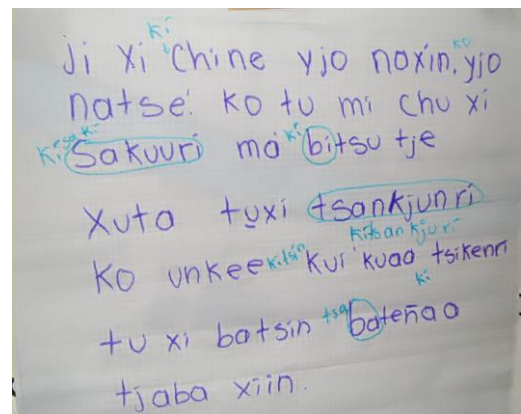 kí
ji xi chine yjo noxín. yjo
ko
natse'. ko tu mi chu xí
Kí sa kí
Sakuurí má kí bitsu tje
xuta tuxi tsankjunrí
kitsankjurí
ko unkee kitsín kui kuaa tsikenrí
kí
tu xi batsin tsa bateñao
tjaba xiin.